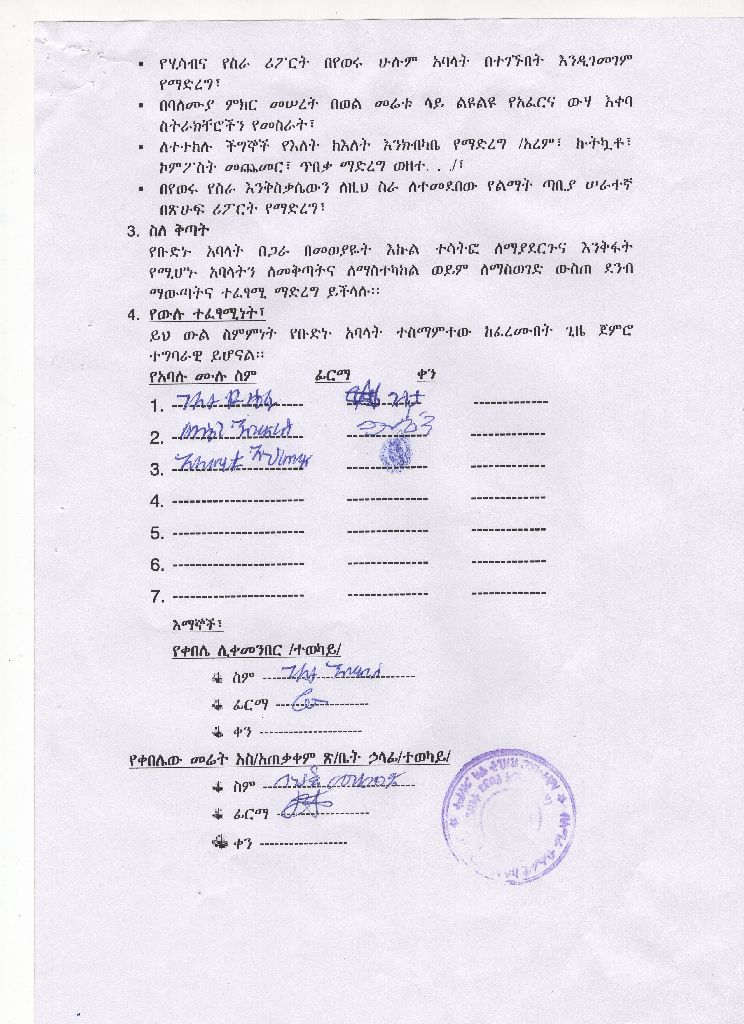 ▪ የሂሳብና የስራ ሪፖርት በየወሩ ሁሉም አባላት በተገኙበት እንዲገመገም
የማድረግ፣
▪ በባለሙያ ምክር መሠረት በወል መሬቱ ላይ ልዩልዩ የአፈርና ውሃ እቀባ
ስትራክቸሮችን የመስራት፣
▪ ለተተከሉ ችግኞች የእለት ከእለት እንክብካቤ የማድረግ /አረም፣ ኩትኳቶ፣
ኮምፖስት መጨመር፣ ጥበቃ ማድረግ ወዘተ. . ./፣
▪ በየወሩ የስራ እንቅስቃሴውን ለዚህ ስራ ለተመደበው የልማት ጣቢያ ሠራተኛ
በጽሁፍ ሪፖርት የማድረግ፣
3. ስለ ቅጣት
የቡድኑ አባላት በጋራ በመወያዬት እኩል ተሳትፎ ለማያደርጉና እንቅፋት
የሚሆኑ አባላትን ለመቅጣትና ለማስተካከል ወይም ለማስወገድ ውስጠ ደንብ
ማውጣትና ተፈፃሚ ማድረግ ይችላሉ፡፡
4. የውሉ ተፈፃሚነት፣
ይህ ውል ስምምነት የቡድኑ አባላት ተስማምተው ከፈረሙበት ጊዜ ጀምሮ
ተግባራዊ ይሆናል፡፡
የአባሉ ሙሉ ስም ፊርማ ቀን
1. -------------------- ------------- ------------
2. -------------------- ------------- ------------
3. -------------------- ------------- ------------
4. -------------------- ------------- ------------
5. -------------------- ------------- ------------
6. -------------------- ------------- ------------
7. -------------------- ------------- ------------
እማኞች፣
የቀበሌ ሊቀመንበር /ተወካይ/
ስም -----------------------
ፊርማ --------------
ቀን ----------------
የቀበሌው መሬት አስ/አጠቃቀም ጽ/ቤት ኃላፊ/ተወካይ/
ስም -----------------------
ፊርማ --------------
ቀን --------------